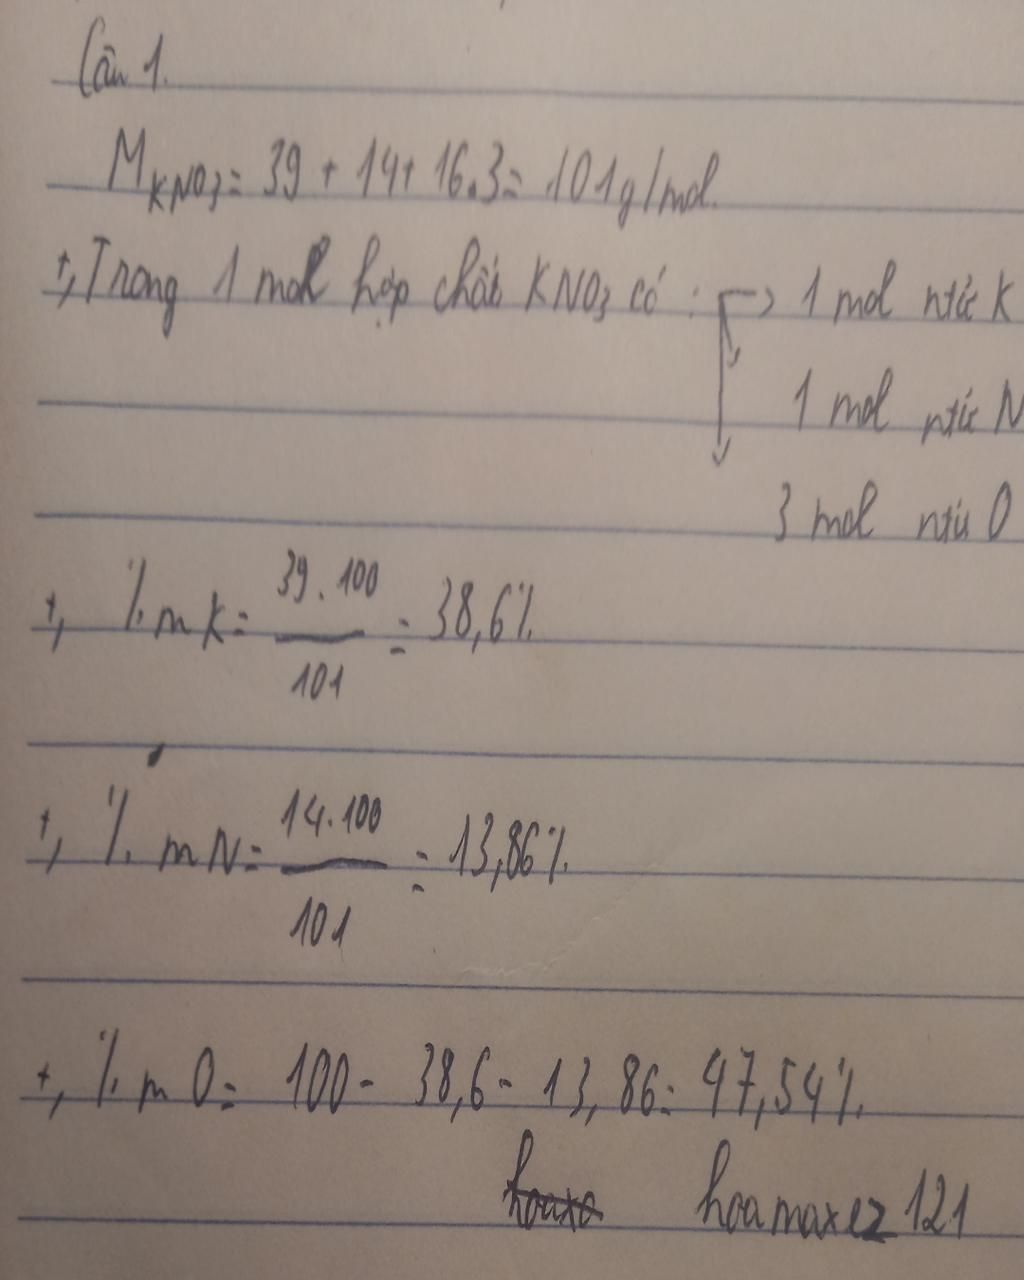 Câu 1.
MKNO3 = 39 + 14 + 16.3 = 101g/mol.
+, Trong 1 mol hợp chất KNO3 có : → 1 mol ntử K
1 mol ntử N
3 mol ntử O
+, %mK = 39.100/101 = 38,6%
+, %mN = 14.100/101 = 13,86%
+, %mO = 100 - 38,6 - 13,86 = 47,54%
hoamaxez 121